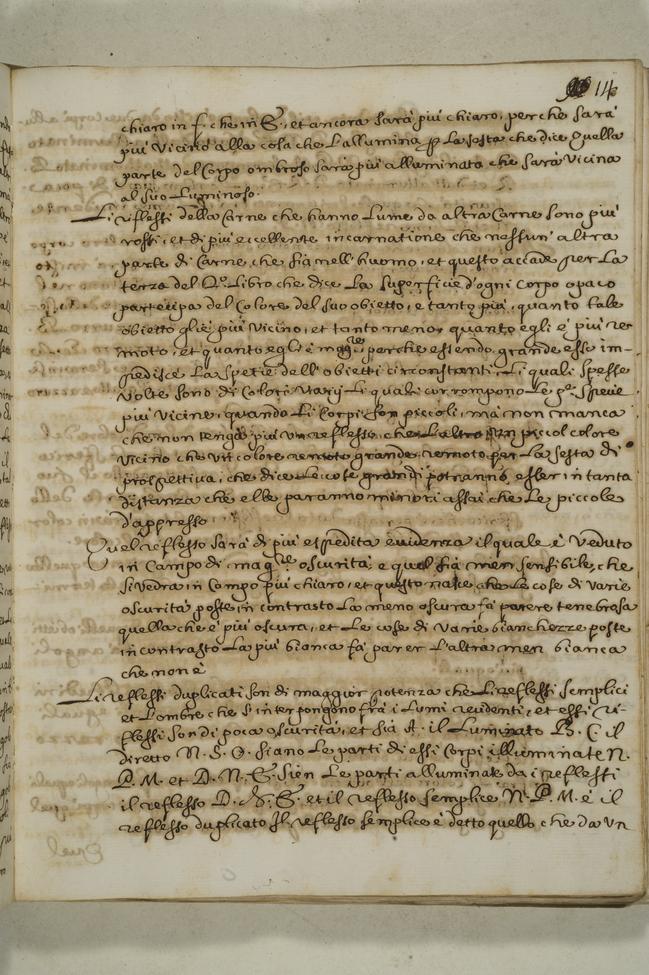 114
chiaro in f. che in G. et ancora sarà piú chiaro, perche sarà
piú Vicino alla cosa che L'allumina p La sesta che dice quella
parte del Corpo ombroso sarà piú alluminata che sarà Vicina
al suo Luminoso.
Li reflessi della Carne che hanno Lume da altra Carne sono piú
rossi, et di piú eccellente incarnatione che nessun' altra
parte di Carne che sia nell'huomo, et questo accade per La
terza del 2.º Libro che dice La superficie d'ogni corpo opaco
partecipa del Colore del suo obietto, e tanto piú, quanto tale
obietto gliè piú Vicino, et tanto meno, quanto egli è piú re
moto, et quanto egli è magre perche essendo grande esse im-
pedisce La spetie dell' obietti circonstanti, Li quali spesse
Volte sono di Colori Varij Li quali corrompono Le pe spetie
piú Vicine, quando Li Corpi son piccoli, mà non manca
che non tenga piú un reflesso che L'altro un piccol colore
Vicino che un colore grande remoto per La sesta di
prospettiva, che dice Le cose grandi potranno esser in tanta
distanza che elle paranno minori assai che Le piccole
d'appresso.
Quel reflesso sarà di piú espedita evidenza il quale è Veduto
in Campo di magre oscurità e quel fia men sensibile, che
si vedrà in Campo piú chiaro, et questo nasce che Le cose di Varie
oscurità poste in contrasto La meno oscura fà parere tenebrosa
quella che è piú oscura, et Le cose di Varie bianchezze poste
in contrasto La piú bianca fà parer L'altra men bianca
che non è
Li reflessi duplicati son di maggior potenza che Li reflessi semplici
et L'ombre che s'interpongono frà i Lumi incidenti, et essi re-
flessi son di poca oscurità, et sia A. il Luminoso B. C il
diretto N. S. O. siano Le parti di essi Corpi illuminate N.
P. M. et D. N. G. sien Le parti alluminate da i reflessi
il reflesso D. N. G. et il reflesso semplice N. P. M. è il
reflesso duplicato Il reflesso semplice è detto quello che da un